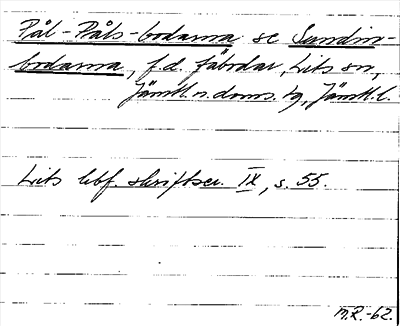 Pål-Påls-bodarna se Sundin-
bodarna, f.d. fäbodar, Lits sn,
Jämtl. n. doms. tg, Jämtl. l.
Lits hbf. skriftser. IX, s. 55.
M.R.-62.